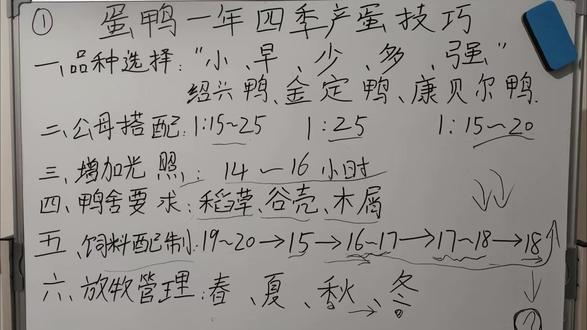 ① 蛋鸭一年四季产蛋技巧
一、品种选择："小、早、少、多、强"
绍兴鸭、金定鸭、康贝尔鸭.
二、公母搭配:1:15~25 1:25 1:15~20
三、增加光照: 14—16小时
四、鸭舍要求:稻草、谷壳、木屑
五、饲料配制:19~20→15→16~17→17~18→18↑
六、放牧管理:春、夏、秋、冬
②